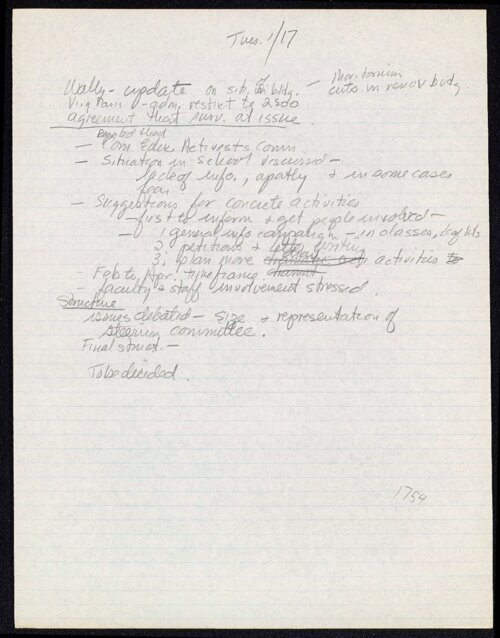 Tues. 1/17
Wally - update on sit. of bldg. - Moritorium
cuts in renov. budg.
Vin Paris - adm. restrict to 2500
agreement that surv. at issue
- Com Educ Activists Comm
- Situation in school discussed -
lack of info., apathy + in some cases
fear
- Suggestions for concrete activities
- first to inform + get people involved -
- 1 general info campaign - in classes, leaflets
2. petitions + letter writing
3. plan more activities
- Feb to Apr. timeframe
- faculty + staff involvement stressed
Structure
issues debated - size + representation of
steering committee.
Final struct. -
To be decided.
1754